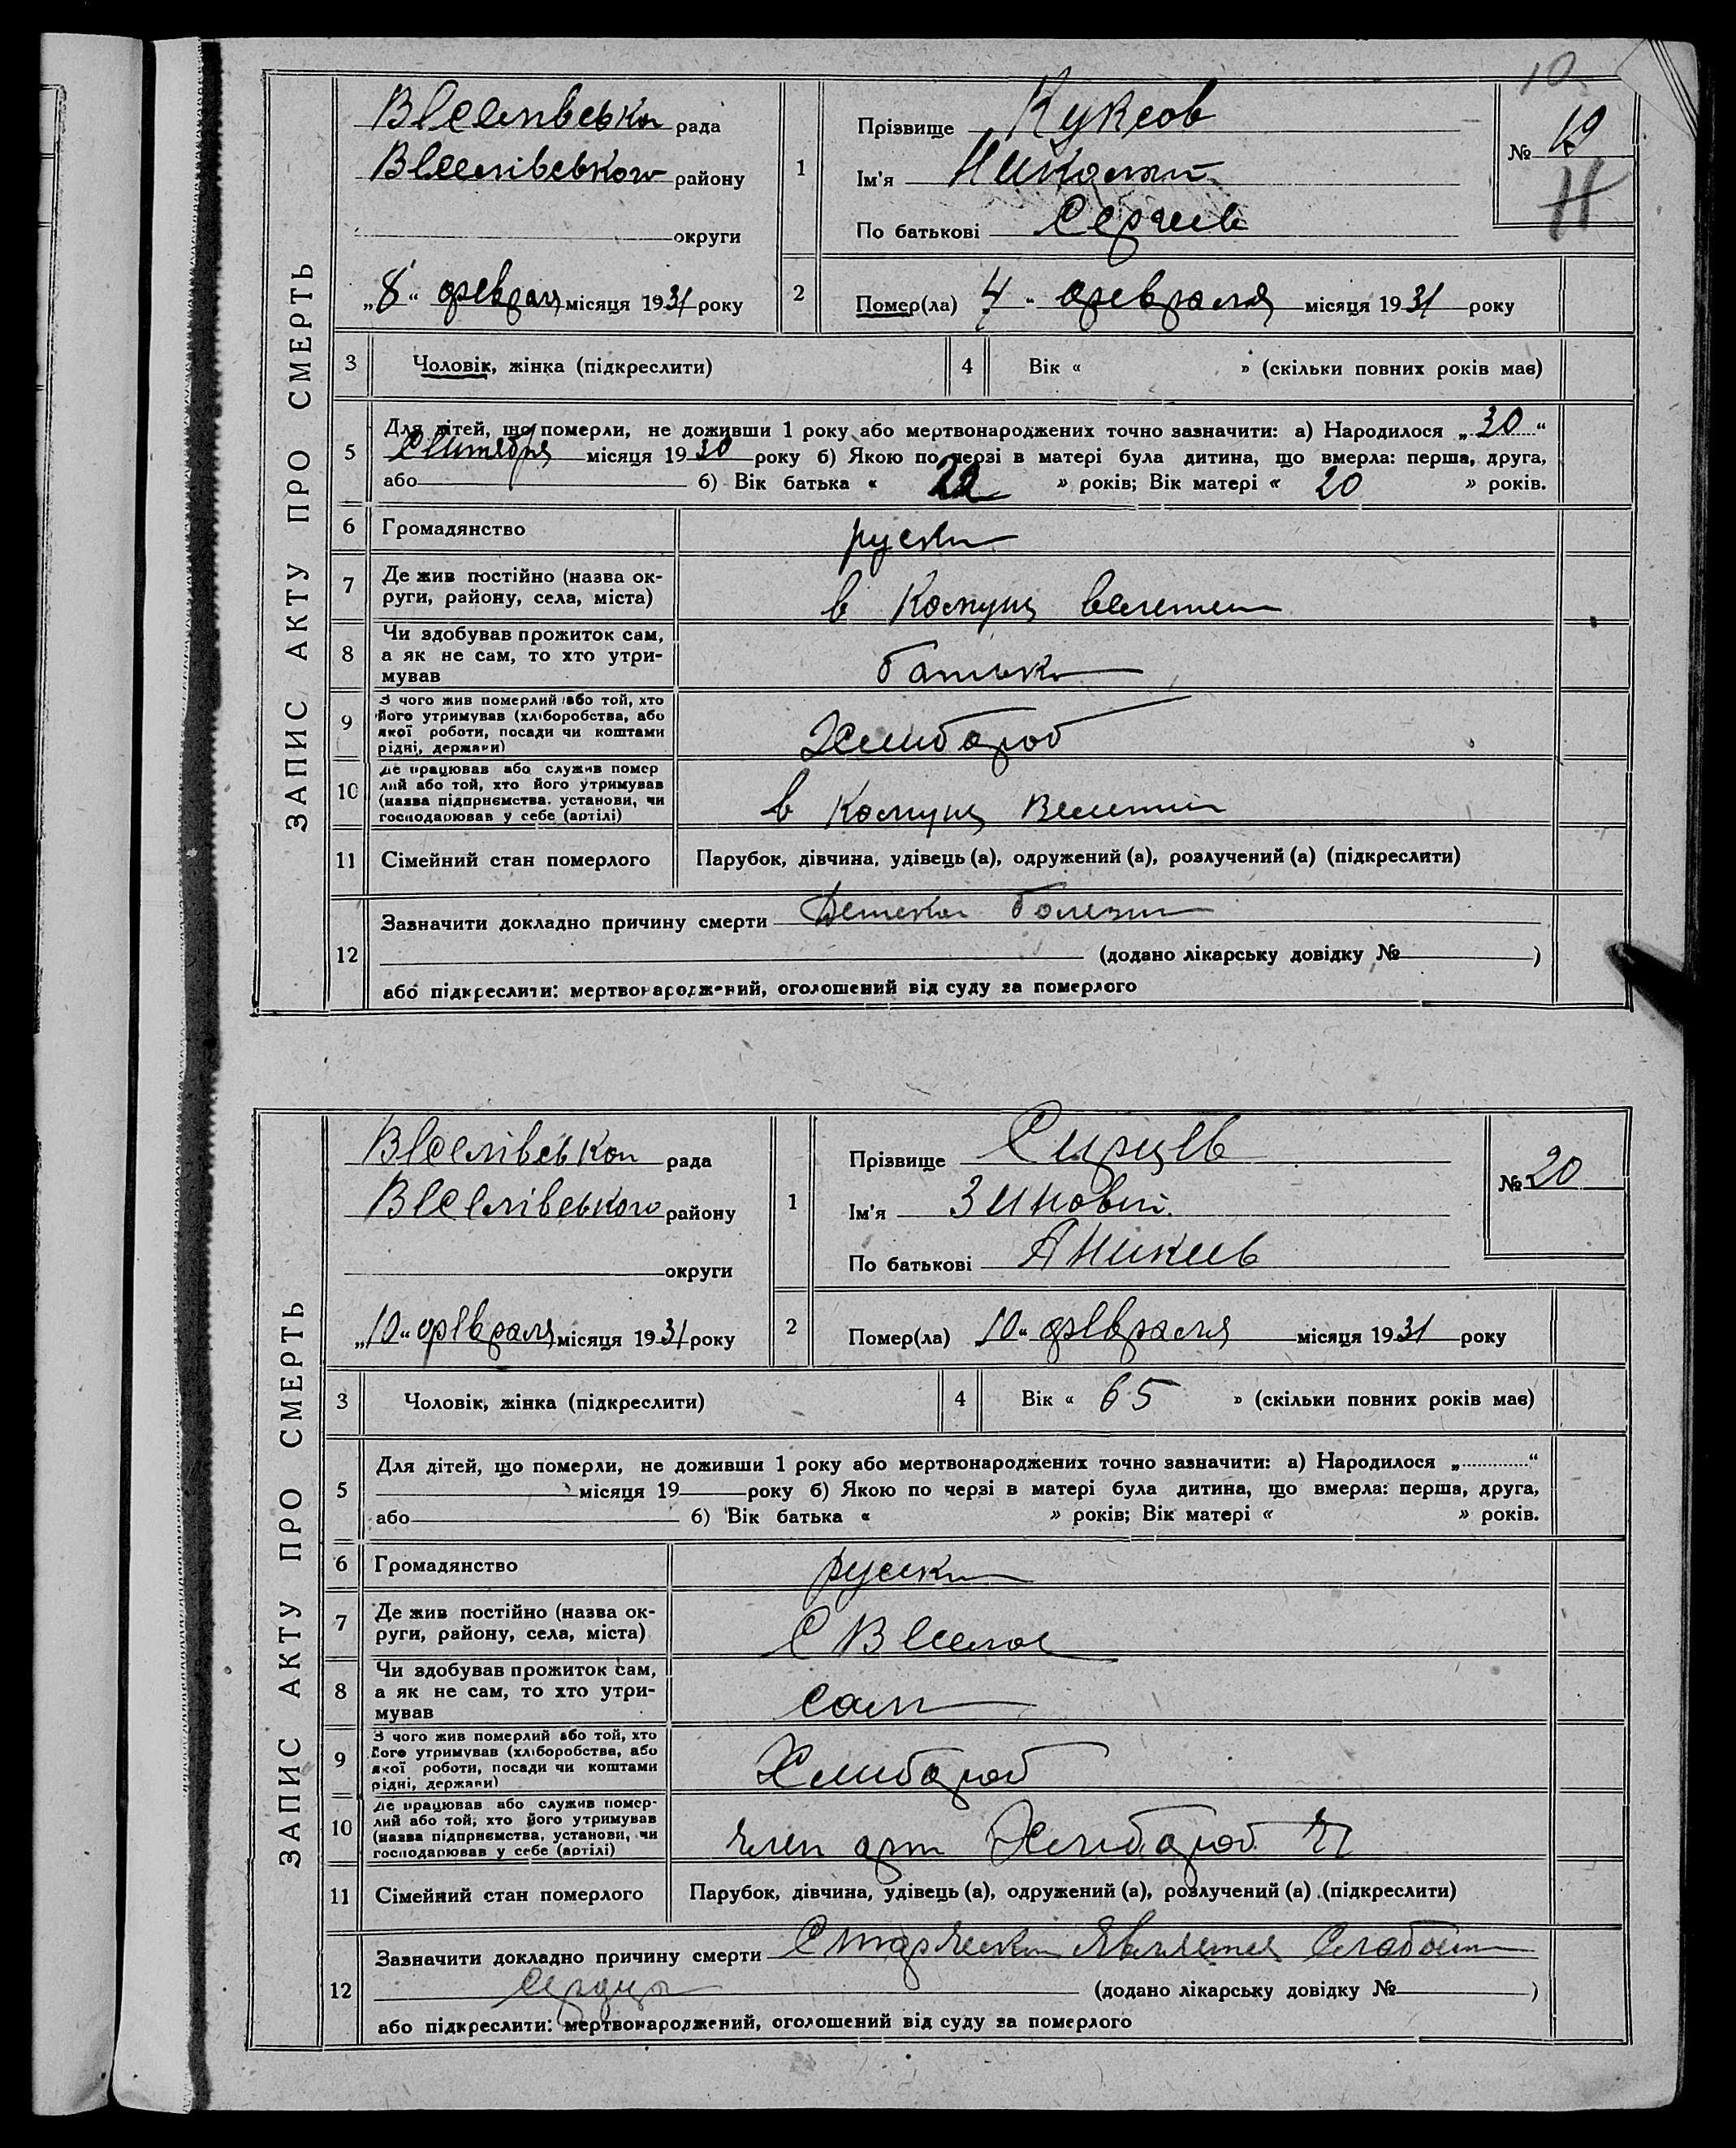 10
ЗАПИС АКТУ ПРО СМЕРТЬ
Веселівська рада
Веселівського району
округи
„8“ февраля місяця 1931 року
1
Прізвище Куксов
Ім'я Николай
По батькові Сергеев
№ 19
2
Помер(ла) 4 " февраля місяця 1931 року
3 Чоловік, жінка (підкреслити)
4 Вік « » (скільки повних років має)
5 Для дітей, що померли, не доживши 1 року або мертвонароджених точно зазначити: а) Народилося „30“
Сентября місяця 1930 року б) Якою по черзі в матері була дитина, що вмерла: перша, друга,
або б) Вік батька « 22 » років; Вік матері « 20 » років.
6 Громадянство руски
7 Де жив постійно (назва ок-
руги, району, села, міста)
в Комуну
8 Чи здобував прожиток сам,
а як не сам, то хто утри-
мував
батько
9 З чого жив померлий або той, хто
його утримував (хліборобства, або
якої роботи, посади чи коштами
рідні, держави)
Хлибороб
10 Де працював або служив помер
лий або той, хто його утримував
(назва підприємства, установи, чи
господарював у себе (артілі)
в Комуну
11 Сімейний стан померлого Парубок, дівчина, удівець (а), одружений (а), розлучений (а) (підкреслити)
12 Зазначити докладно причину смерти Детска болезн
(додано лікарську довідку № )
або підкреслити: мертвонароджений, оголошений від суду за померлого
ЗАПИС АКТУ ПРО СМЕРТЬ
Веселівськои рада
Веселівського району
округи
„10“ февраля місяця 1931 року
1
Прізвище Сирцев
Ім'я Зиновій
По батькові Аникеев
№ 20
2
Помер(ла) 10“ февраля місяця 1931 року
3 Чоловік, жінка (підкреслити)
4 Вік « 65 » (скільки повних років має)
5 Для дітей, що померли, не доживши 1 року або мертвонароджених точно зазначити: а) Народилося „ “
місяця 19 року б) Якою по черзі в матері була дитина, що вмерла: перша, друга,
або б) Вік батька « » років; Вік матері « » років.
6 Громадянство русски
7 Де жив постійно (назва ок-
руги, району, села, міста)
С Веселое
8 Чи здобував прожиток сам,
а як не сам, то хто утри-
мував
сам
9 З чого жив померлий або той, хто
його утримував (хліборобства, або
якої роботи, посади чи коштами
рідні, держави)
Хлибороб
10 Де працював або служив помер-
лий або той, хто його утримував
(назва підприємства, установи, чи
господарював у себе (артілі)
член арт Хлибороб
11 Сімейний стан померлого Парубок, дівчина, удівець (а), одружений (а), розлучений (а) (підкреслити)
12 Зазначити докладно причину смерти Старчески Явления Слабост
сердца
(додано лікарську довідку № )
або підкреслити: мертвонароджений, оголошений від суду за померлого